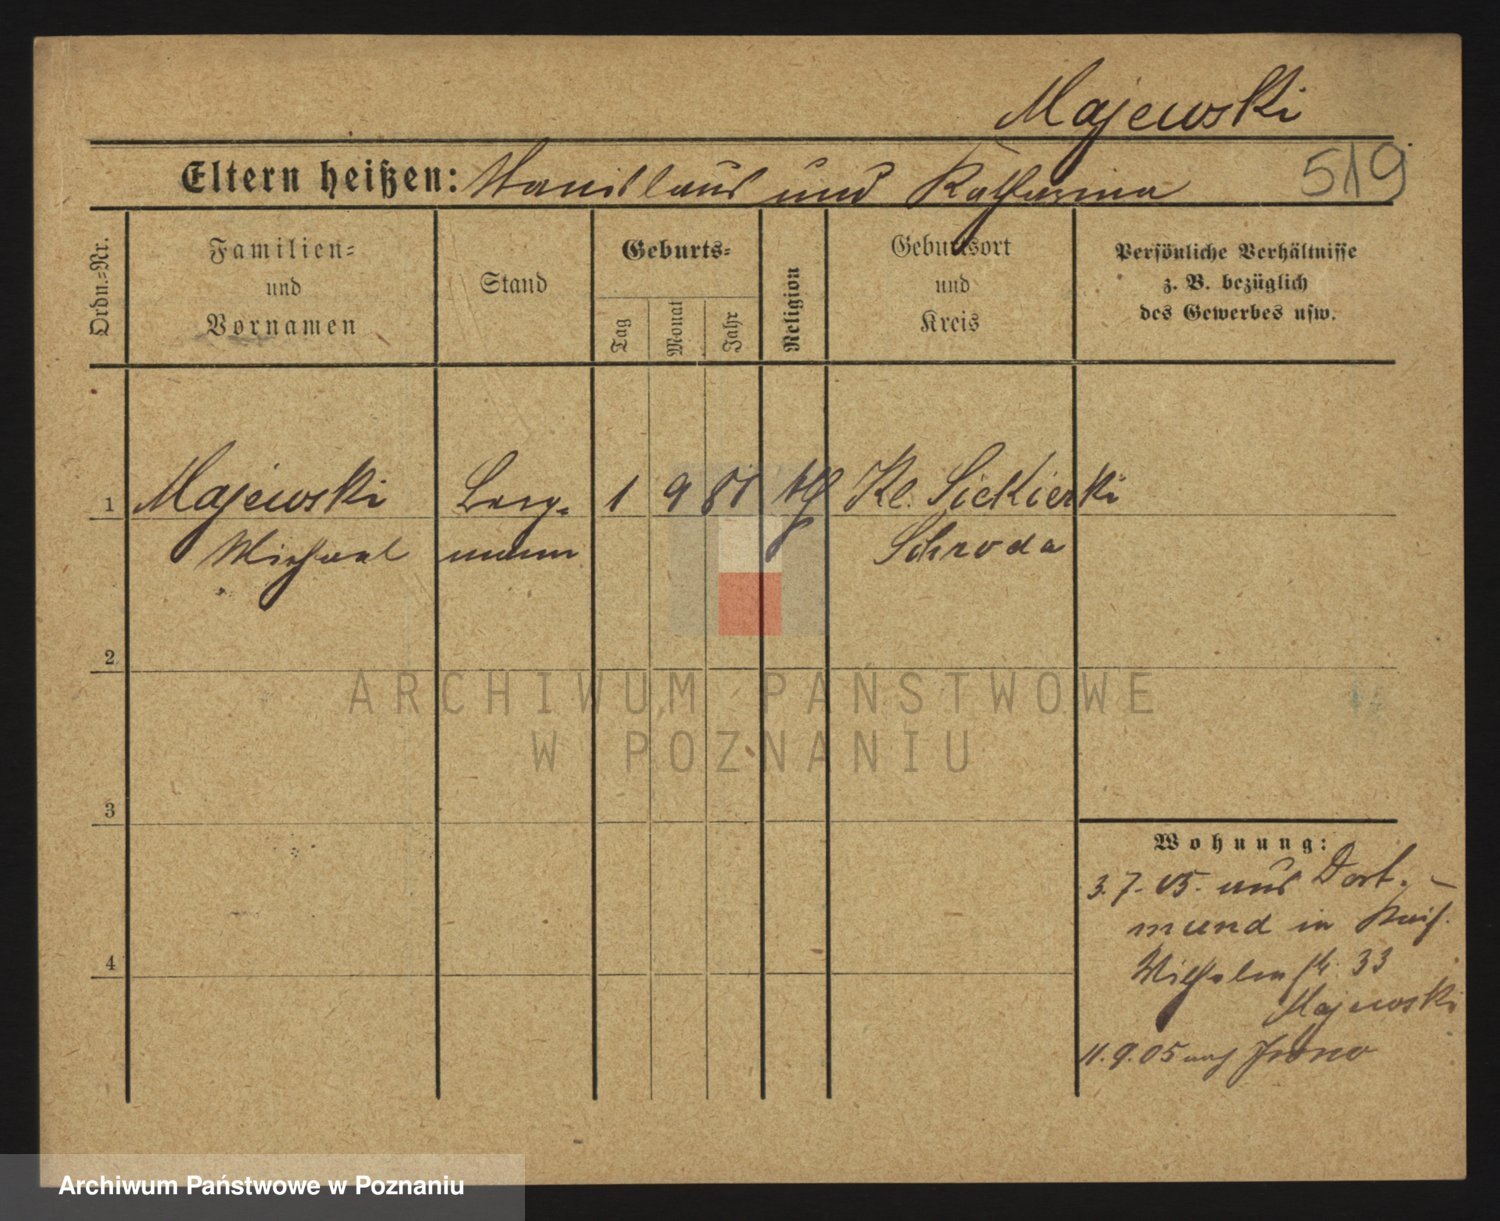 Majewski
Eltern heißen: Stanislaus und Katharina
519
Ordn.-Nr.
Familien-
und
Vornamen
Stand
Geburts-
Tag
Monat
Jahr
Religion
Geburtsort
und
Kreis
Persönliche Verhältnisse
z. B. bezüglich
des Gewerbes usw.
1 Majewski Berg- 1 9 81 kth Kl. Siekierki
Michael mann Schroda
2
3
4
Wohnung:
3.7.05. aus Dort-
mund in Kais.
Wilhelm str. 33
Majewski
11.9.05 nach
ARCHIWUM PAŃSTWOWE
W POZNANIU
Archiwum Państwowe w Poznaniu